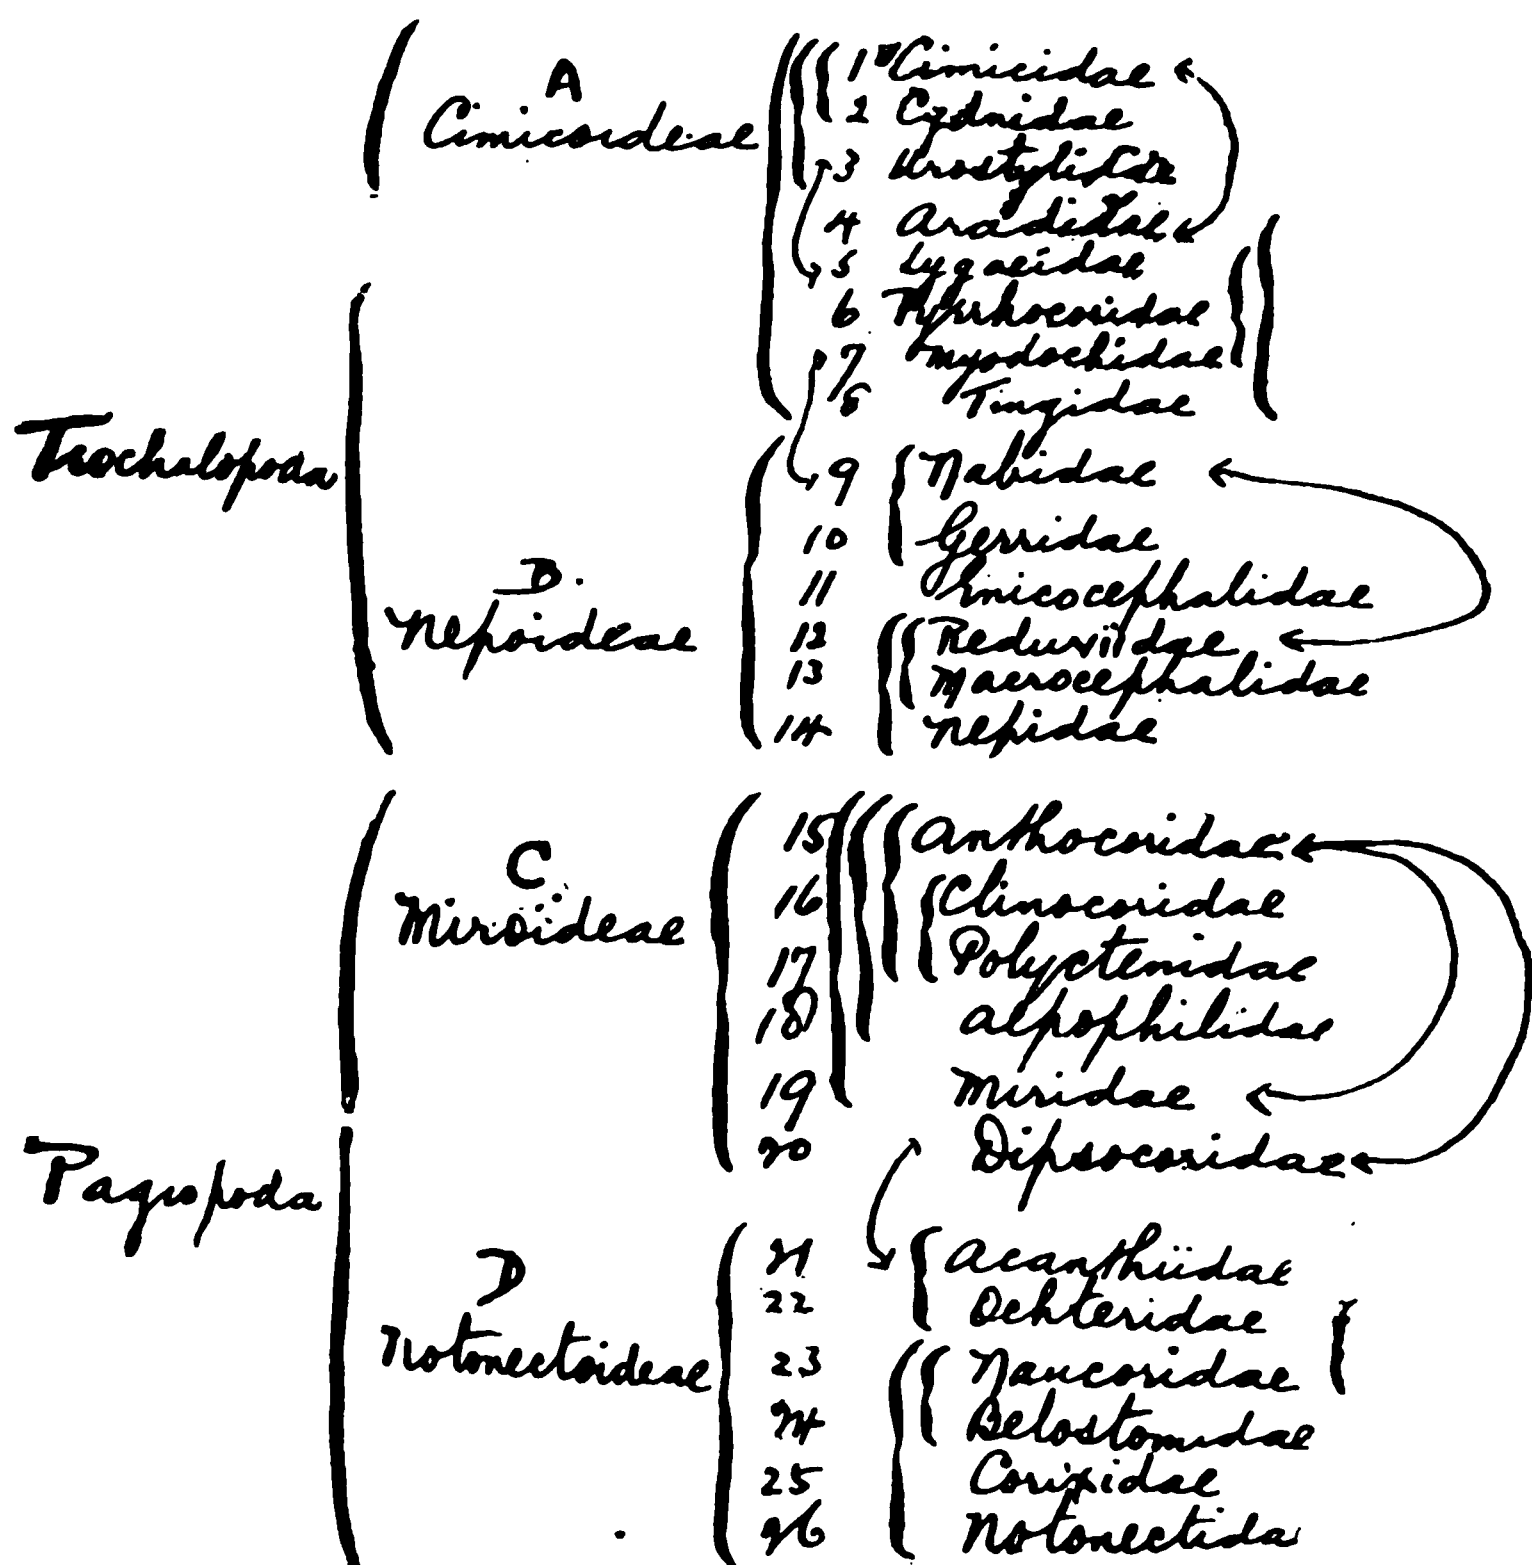 1 Cimicidae
A
Cimicoideae
2 Cydnidae
3 Urostylidae
4 Aradidae
5 Lygaeidae
6 Pyrrhocoridae
7 Myodochidae
8 Tingidae
Trochalopoda
9 Nabidae
10 Gerridae
B.
Nepoideae
11 Enicocephalidae
12 Reduviidae
13 Macrocephalidae
14 Nepidae
15 Anthocoridae
C
Miroïdeae
16 Clinocoridae
17 Polyctenidae
18 Aepophilidae
19 Miridae
20 Dipsocoridae
Pagiopoda
D
Notonectoideae
21 Acanthiidae
22 Ochteridae
23 Naucoridae
24 Belostomidae
25 Corixidae
26 Notonectida